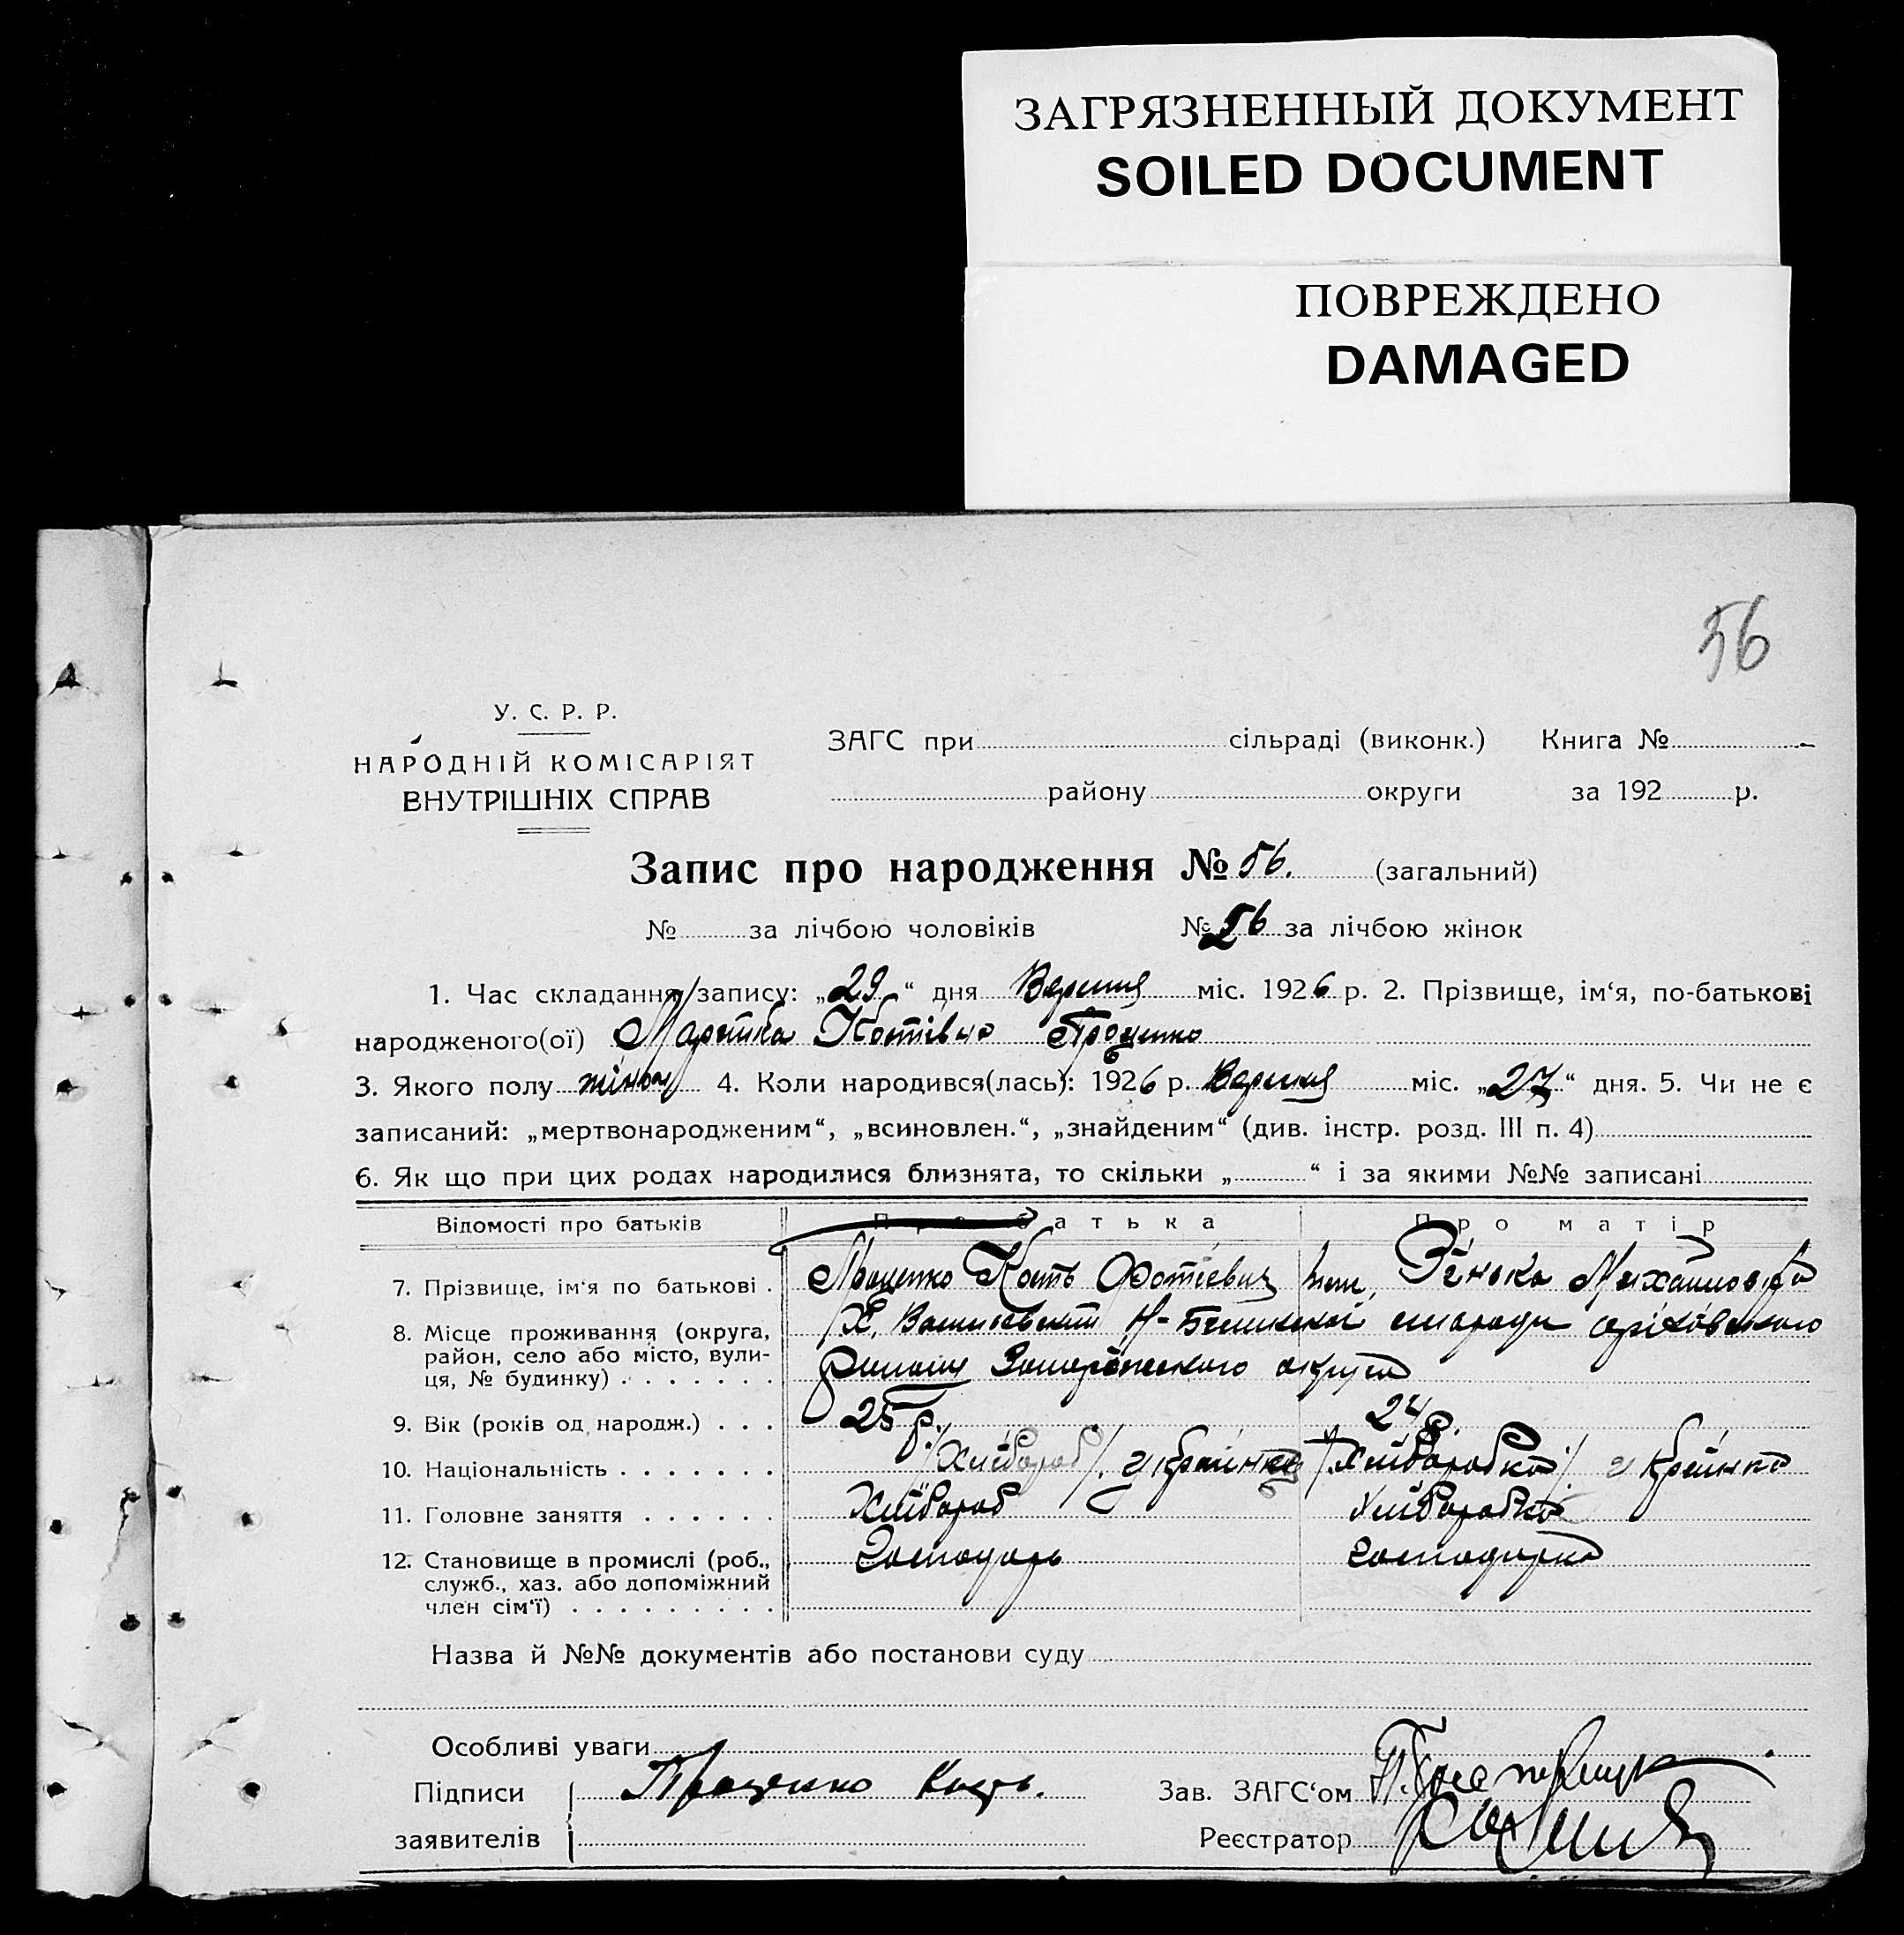 ЗАГРЯЗНЕННЫЙ ДОКУМЕНТ
SOILED DOCUMENT
ПОВРЕЖДЕНО
DAMAGED
56
У. С. Р. Р.
НАРОДНІЙ КОМІСАРІЯТ
ВНУТРІШНІХ СПРАВ
ЗАГС при сільраді (виконк.) Книга №
району округи за 192 р.
Запис про народження № 56. (загальний)
№ за лічбою чоловіків № 56 за лічбою жінок
1. Час складання запису: „29“ дня Вересня міс. 1926 р. 2. Прізвище, ім‘я, по-батькові
народженого(ої) Костівна Проценко
3. Якого полу жіноч 4. Коли народився(лась): 1926 р. Вересня міс. „27“ дня. 5. Чи не є
записаний: „мертвонародженим“, „всиновлен.“, „знайденим“ (див. інстр. розд. III п. 4)
6. Як що при цих родах народилися близнята, то скільки „ “ і за якими №№ записані
Відомості про батьків Про батька Про матір
7. Прізвище, ім‘я по батькові . Проценко Кость Фотіевич Михайловна
8. Місце проживання (округа,
район, село або місто, вули-
ця, № будинку) . . . . . . . Запорожського округа
9. Вік (років од народж.) . . . 25 р. 24 р.
10. Національність . . . . . . . /Хлібороб/. україн /Хліборобка/ украінка
11. Головне заняття . . . . . . Хлібороб Хліборобка
12. Становище в промислі (роб.,
служб., хаз. або допоміжний
член сім‘ї) . . . . . . . . . Господарь господарка
Назва й №№ документів або постанови суду
Особливі уваги
Підписи Проценко Кость.
заявителів
Зав. ЗАГС‘ом
Реєстратор